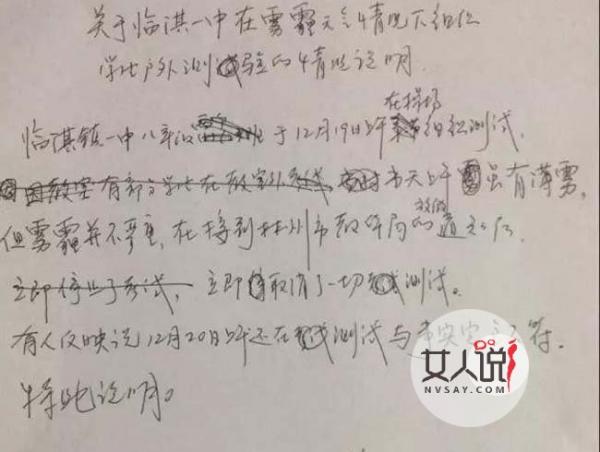 关于临淇一中在雾霾天气情况下组织
学生户外测试验的情况说明
在操场
临淇镇一中八年级 于12月19日上午 组织测试,
因教室有部分学生在教室外考试 当天上午 虽有薄雾,
放假
但雾霾并不严重,在接到林州市教体局的通知后
立即停止了考试,立即取消了一切 测试。
有人反映说12月20日上午还在 测试与事实完全不符。
特此说明。
女人说!
NVSAY.COM